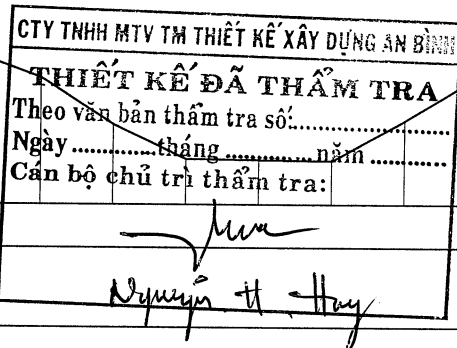 CTY TNHH MTV TM THIẾT KẾ XÂY DỰNG AN BÌNH
THIẾT KẾ ĐÃ THẨM TRA
Theo văn bản thẩm tra số:....................
Ngày ............tháng .............năm ...........
Cán bộ chủ trì thẩm tra:
Nguyễn H. Huy